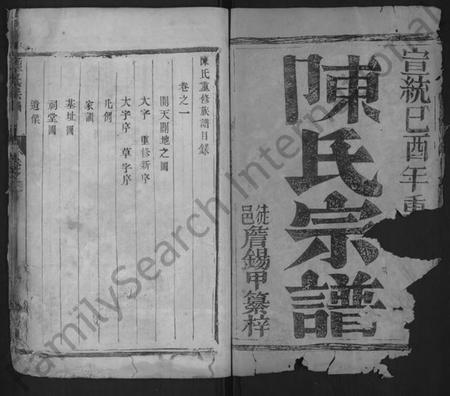 宣統已酉年重
陳氏宗譜
邑
詹錫甲纂梓
陳氏重修族譜目錄
卷之一
開天闢地之圖
大字 重修新序
大字序 草字序
凡例
家訓
基址圖
祠堂圖
FamilySearch International